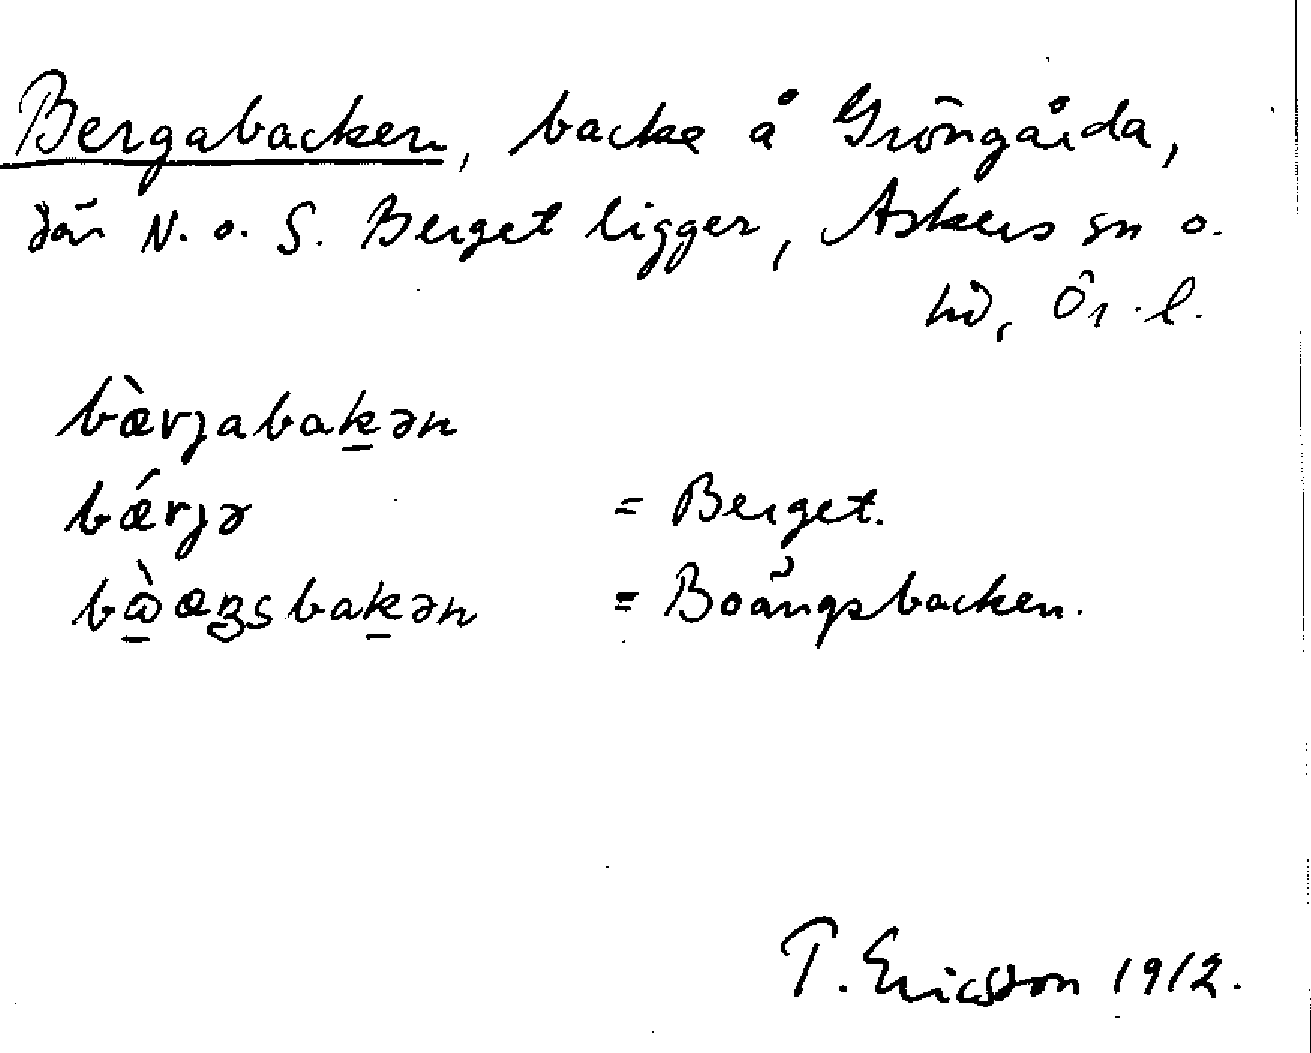 Bergabacken, backe å Gröngärda,
där N. o. S. Berget ligger, Askers sn o.
hd, Ör. l.
bæ̀rjabaḵən
bǽrjə = Berget.
= Boängsbacken.
T. Ericsson 1912.